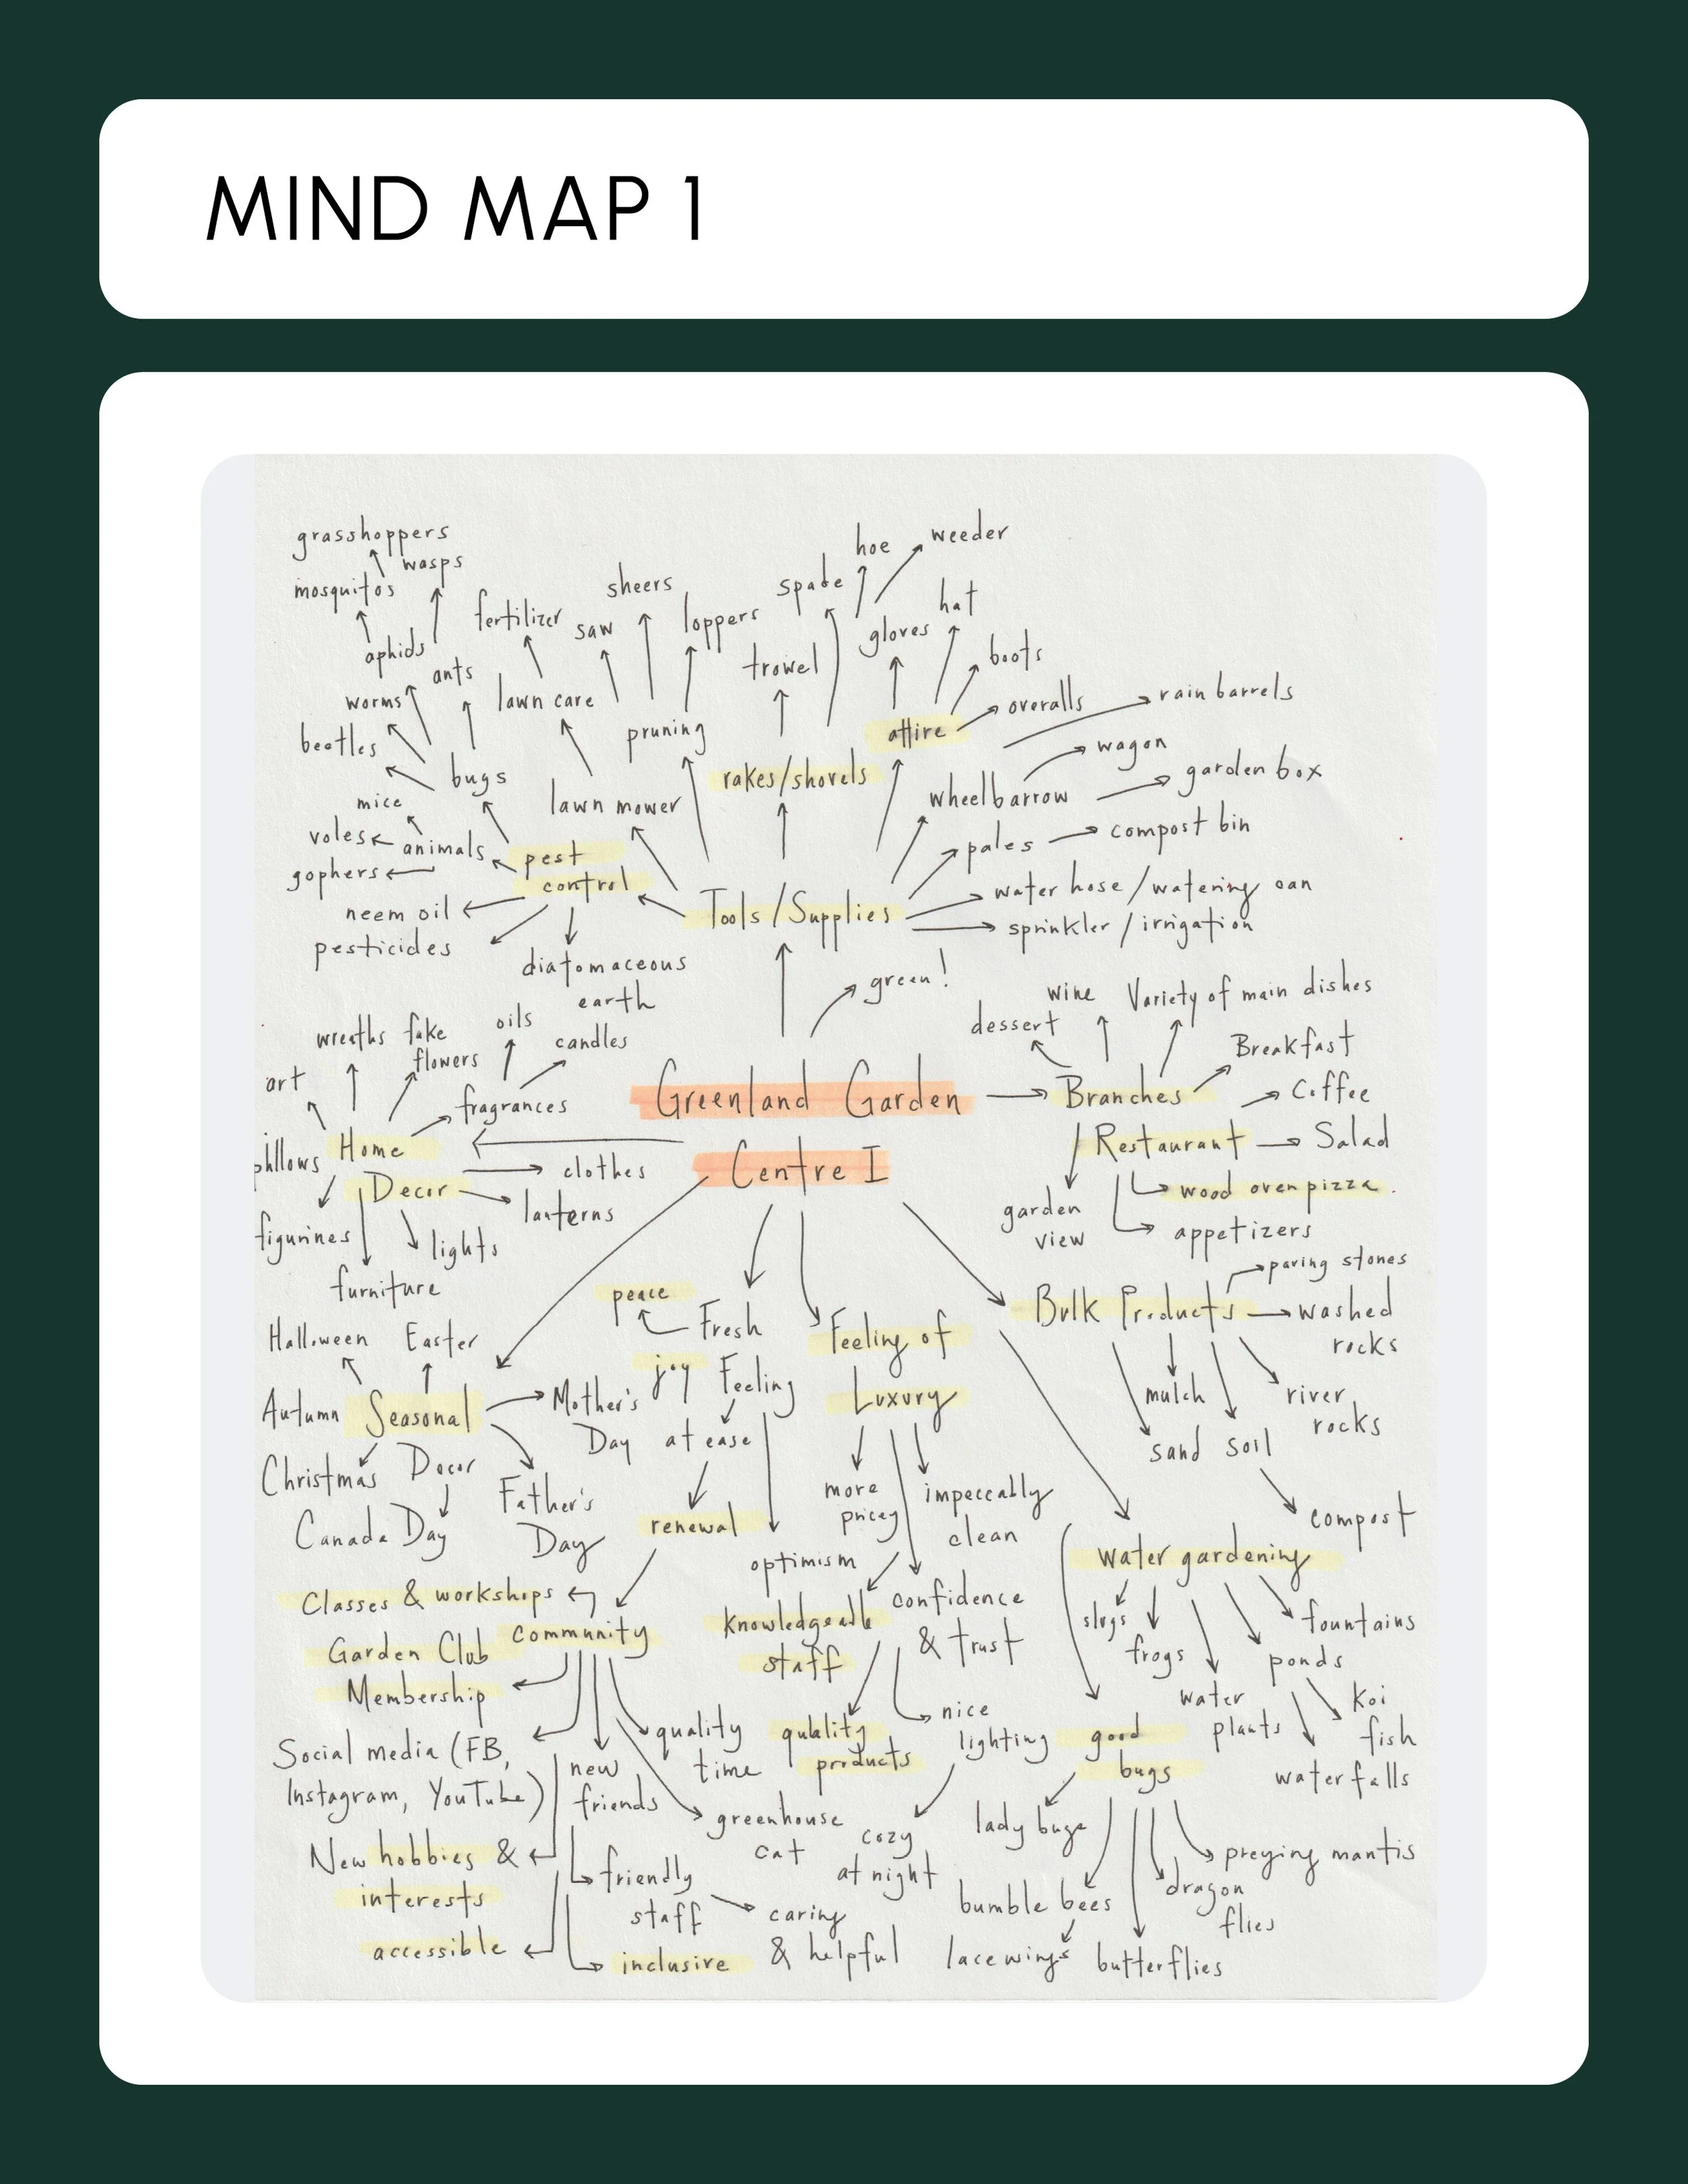 MIND MAP 1
grasshoppers
wasps
mosquitos
aphids
ants
worms
beetles
bugs
mice
voles
animals
gophers
fertilizer
lawn care
lawn mower
saw
sheers
loppers
pruning
trowel
spade
hoe
weeder
rakes/shovels
gloves
hat
boots
overalls
attire
rain barrels
wagon
wheelbarrow
garden box
pales
compost bin
water hose/watering can
sprinkler/irrigation
pest
control
neem oil
pesticides
diatomaceous
earth
Tools/Supplies
green!
wreaths
fake
flowers
oils
candles
art
fragrances
Home
Decor
pillows
clothes
lanterns
figurines
lights
furniture
Greenland Garden
Centre I
wine
Variety of main dishes
dessert
Breakfast
Branches
Coffee
Restaurant
Salad
wood oven pizza
garden
view
appetizers
paving stones
Bulk Products
washed
rocks
mulch
river
rocks
sand
soil
compost
Halloween
Easter
Autumn
Seasonal
Decor
Christmas
Canada Day
Mother's
Day
Father's
Day
peace
Fresh
Feeling
joy
at ease
renewal
optimism
Feeling of
Luxury
more
pricey
impeccably
clean
Knowledgeable
staff
confidence
& trust
Classes & workshops
community
Garden Club
Membership
Social media (FB,
Instagram, YouTube)
New hobbies &
interests
accessible
new
friends
quality
time
greenhouse
cat
friendly
staff
caring
& helpful
inclusive
quality
products
nice
lighting
cozy
at night
water gardening
slugs
frogs
water
plants
ponds
fountains
Koi
fish
waterfalls
good
bugs
lady bugs
bumble bees
lacewings
butterflies
dragon
flies
preying mantis